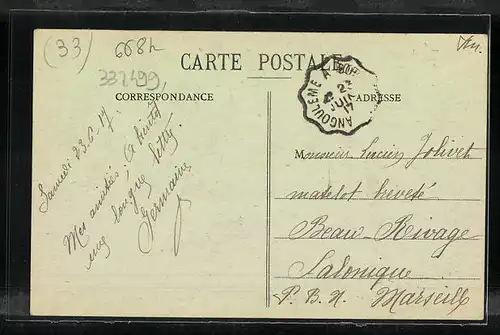 (33)
668h
332499,
CARTE POSTALE
CORRESPONDANCE
ADRESSE
ANGOULEME A BOR
23
JUIN
17
Samedi 23.6.17.
Mes amitiés; à bientôt
une longue lettre
Germaine
Monsieur Lucien Jolivet
matelot breveté
Beau Rivage
Salonique
P. B. N. Marseille